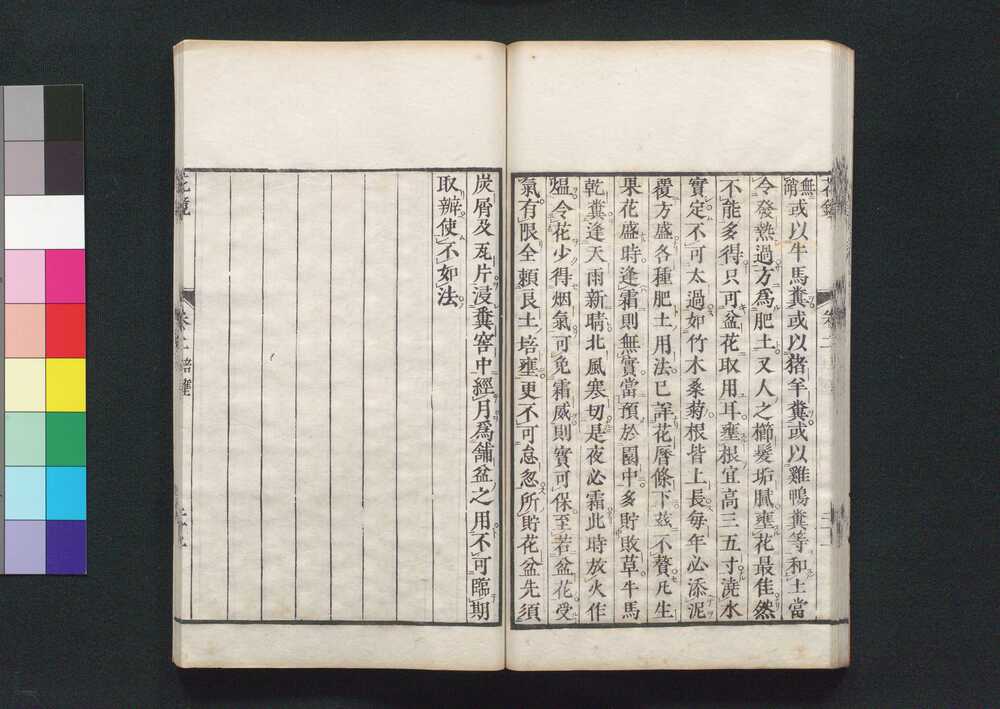 無窮或以牛馬糞。或以猪羊糞。或以雞鴨糞等。和土當
令發熱過。方爲肥土。又人之櫛髮垢膩。壅花最佳。然
不能多得。只可盆花取用耳。壅根宜高三五寸。澆水
實定不可太過。如竹木桑菊。根皆上長。每年必添泥
覆方盛。各種肥土用法。已詳花曆條下。玆不贅。凡生
果花盛時逢霜則無實。當預於園中。多貯敗草牛馬
乾糞。逢天雨新晴。北風寒切。是夜必霜。此時放火作
煴。令花少得烟氣。可免霜威。則實可保。至若盆花受
氣有限。全頼良土培壅。更不可怠忽。所貯花盆。先須
炭屑及瓦片。浸糞窖中。經月爲舗盆之用。不可臨期
取辦。使不如法。
花鏡
卷二 培壅